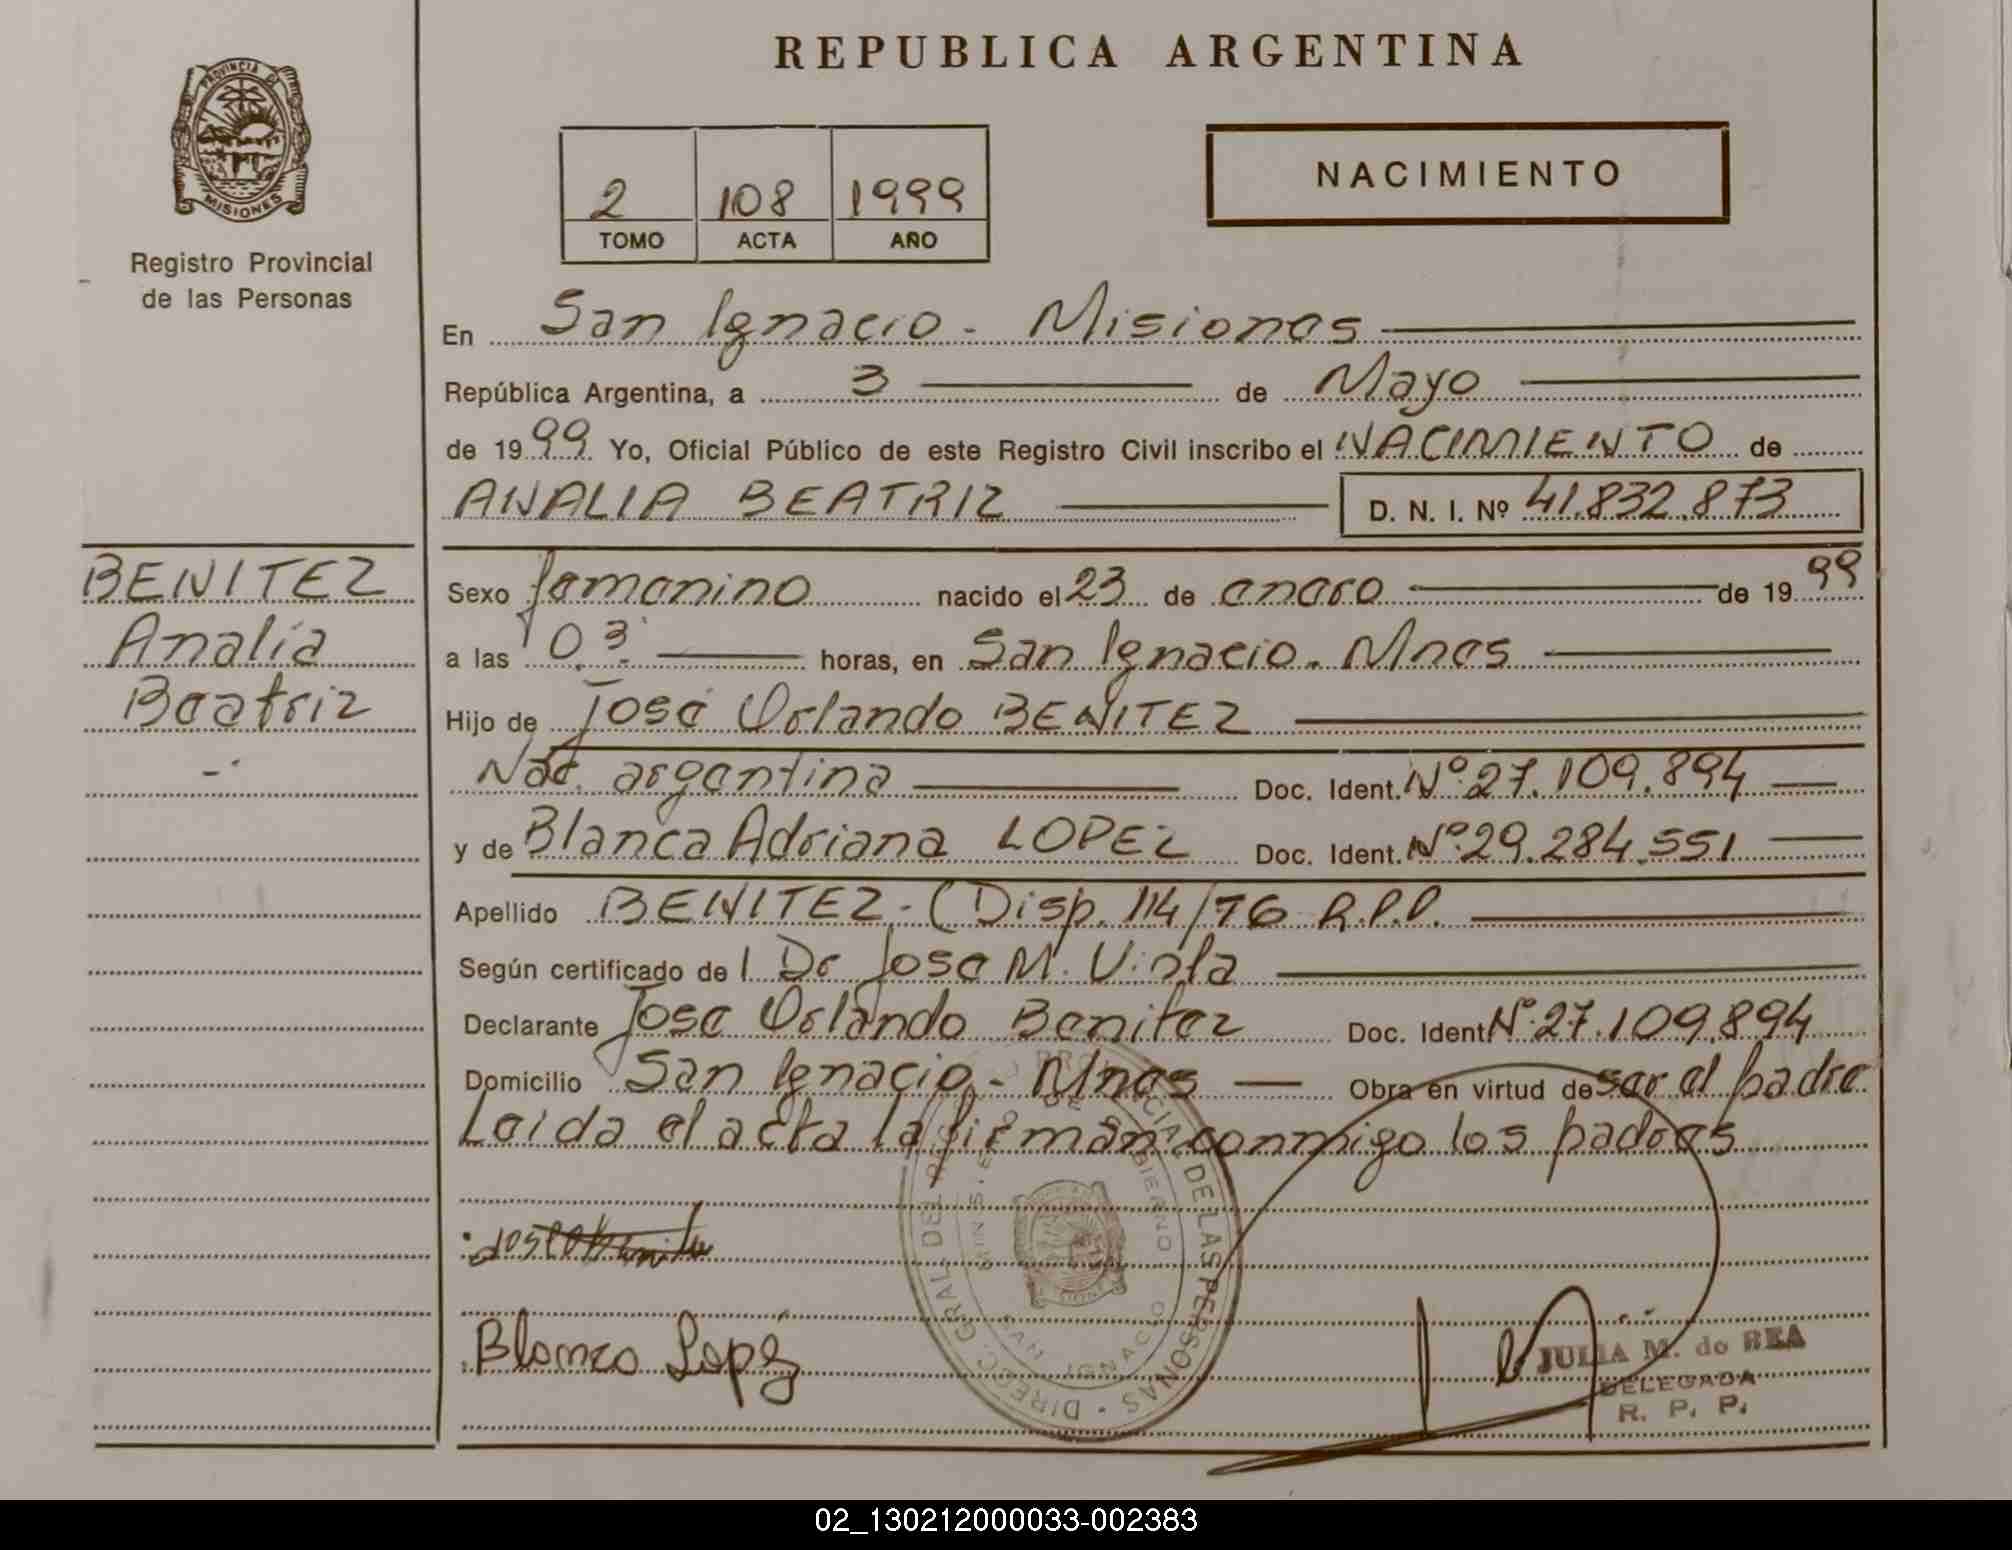 REPUBLICA ARGENTINA
PROVINCIA D
MISIONES
Registro Provincial
de las Personas
2 108 1999
TOMO ACTA AÑO
NACIMIENTO
En San Ignacio - Misiones
República Argentina, a 3 de Mayo
de 1999 Yo, Oficial Público de este Registro Civil inscribo el NACIMIENTO de
ANALIA BEATRIZ D. N. I. Nº 41.832.873
BENITEZ
Analia
Beatriz
Sexo femenino nacido el 23 de enero de 1999
a las 03 horas, en San Ignacio. Mnes
Hijo de José Orlando BENITEZ
Nac. argentina Doc. Ident. Nº 27.109.894
y de Blanca Adriana LOPEZ Doc. Ident. Nº 29.284.551
Apellido BENITEZ - (Disp. 114/76 R.P.P.
Según certificado de l Dr Jose M. Viola
Declarante Jose Orlando Benitez Doc. Ident Nº 27.109.894
Domicilio San Ignacio - Mnes Obra en virtud de ser el padre
Leida el acta la firman conmigo los padres
DIREC. GRAL. DEL REG. PROVINCIAL DE LAS PERSONAS
SAN IGNACIO
Blanca Lopez
JULIA M. de REA
DELEGADA
R. P. P.
02_130212000033-002383